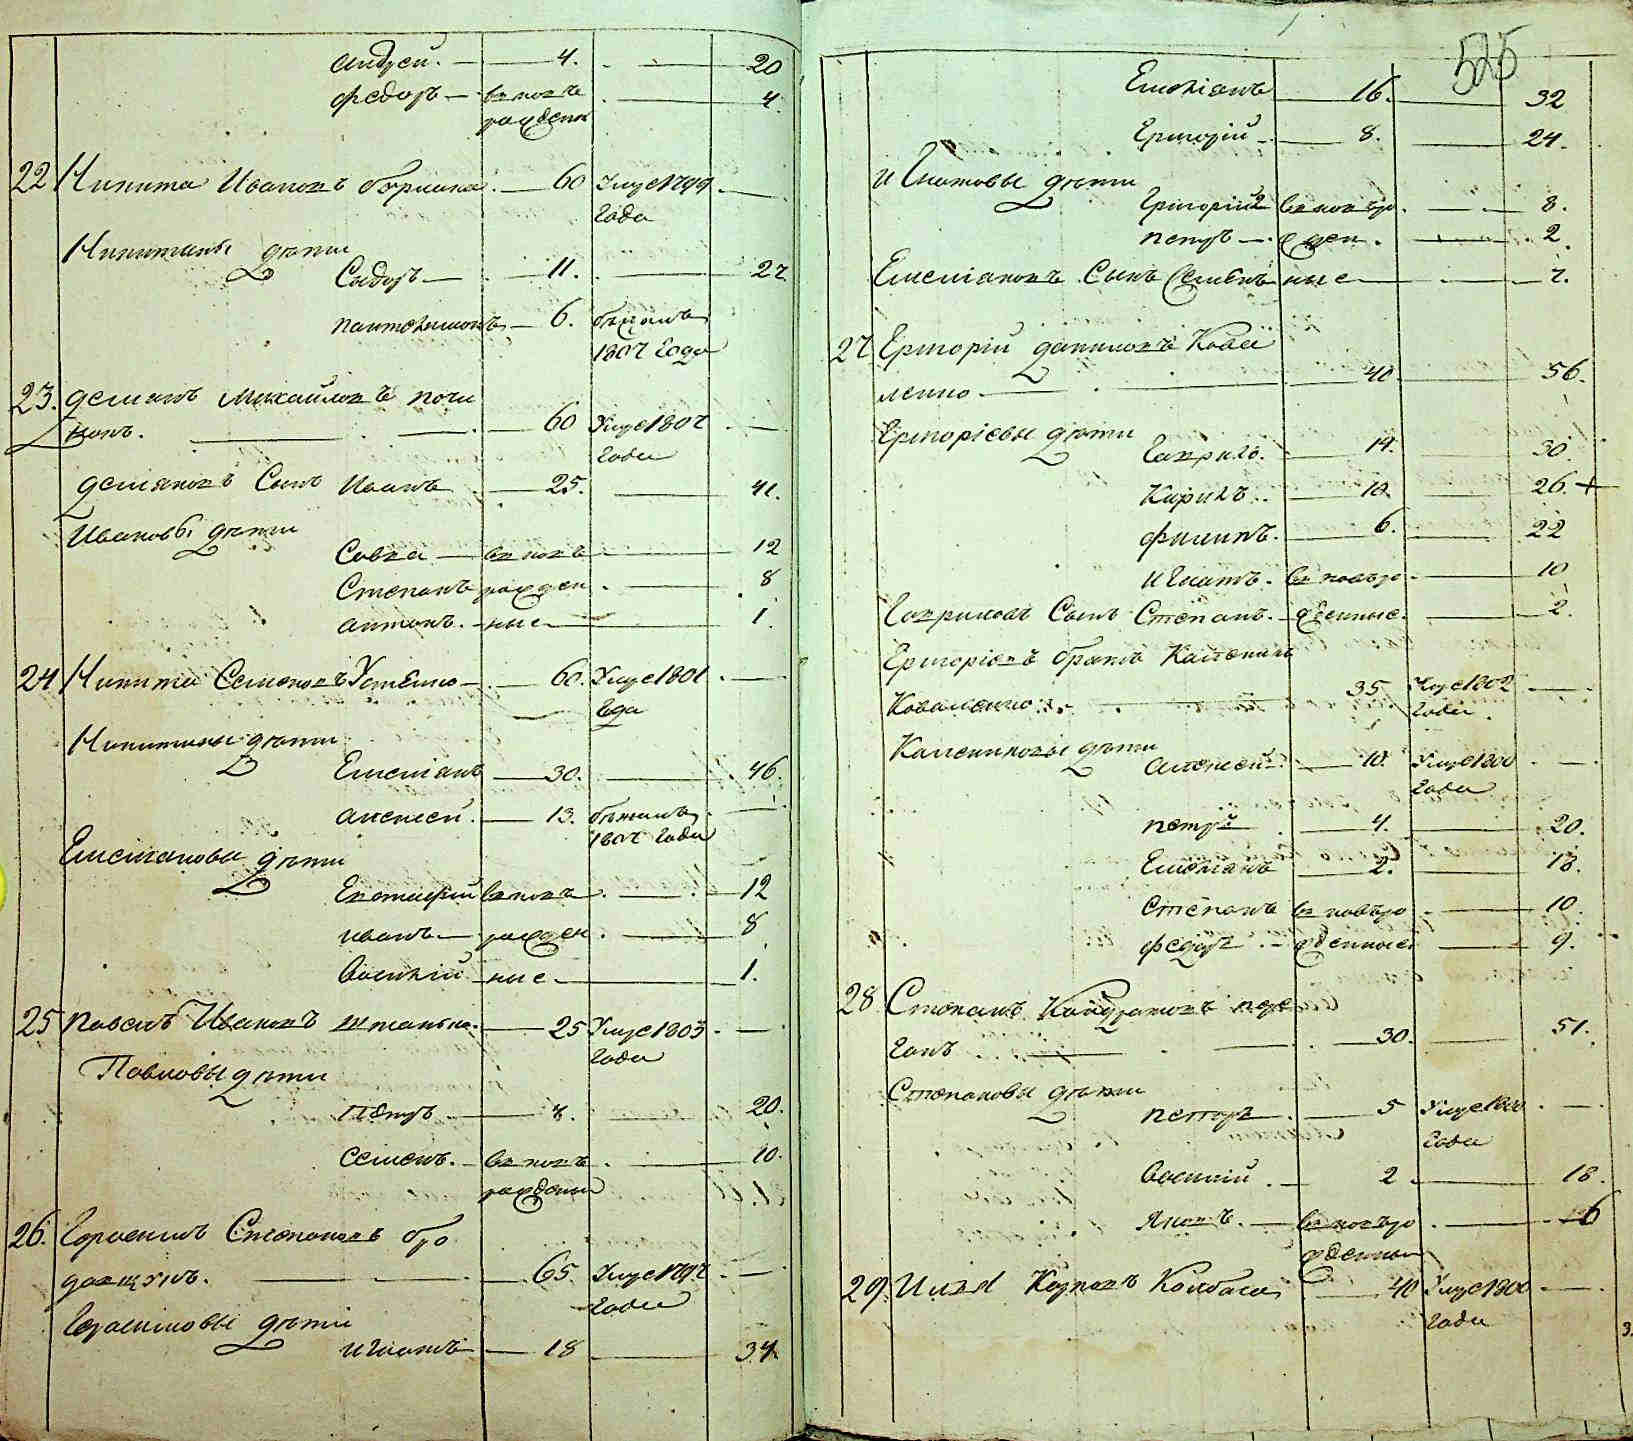 андрей. 4. 20
федоръ вновъ 4.
рожденъ
22 Никита Ивановъ 60 Умре 1799
Года
Никитины дѣти
Сидоръ 11. 27
пантелимонъ 6. бѣжалъ
1807 Года
23. демянъ Михайловъ
60 Умре 1807
Года
демяновъ Сынъ Иванъ 25. 41.
Ивановы дѣти
Савка вновъ 12
Степанъ рожден 8
антонъ. ные 1.
24 Никита Семеновъ Устенко 60. Умре 1801
Года
Никитины дѣти
Емелianъ 30. 46.
алексей. 13. бѣжалъ
1807 Года
Емелiановы дѣти
Евтифiй вновъ 12
иванъ рожден 8
Василiй ные 1.
25 павелъ Ивановъ 25 Умре 1803
Года
Павловы дѣти
Пётръ 20.
семенъ. вновъ 10.
рожденый
26. Герасимъ Степановъ
65. Умре 1797
Года
Герасимовы дѣти
игнатъ 18 34.
525
Емелiанъ 16. 32
Григорiй 8. 24.
игнатовы дѣти
Григорiй вновъро 8.
петръ жден 2.
Емелiановъ Сынъ Семенъ ные
27 Григорiй даниловъ Кова
ленко 40. 56.
Григорiевы дѣти
Гаврилъ. 14. 30.
Кирилъ 10. 26. +
филипъ. 6. 22
игнатъ. вновъро 10
Гавриловъ Сынъ Степанъ. жденные. 2.
Григорiевъ братъ Калениκъ
Коваленко 35 Умре 1802
Года.
Калениковы дѣти
алексей 10. Умре 1800
Года
петръ 4. 20.
Емелiанъ 2. 18.
степанъ вновъро 10
федоръ жденные 9.
28 Степанъ Кондратовъ
30. 51.
Степановы дѣти
петръ 5 Умре 1800
Года
василiй. 2 18.
Яковъ. вновъро 6
жденный
29. Илья Карповъ Колбаса 40 Умре 1800
Года